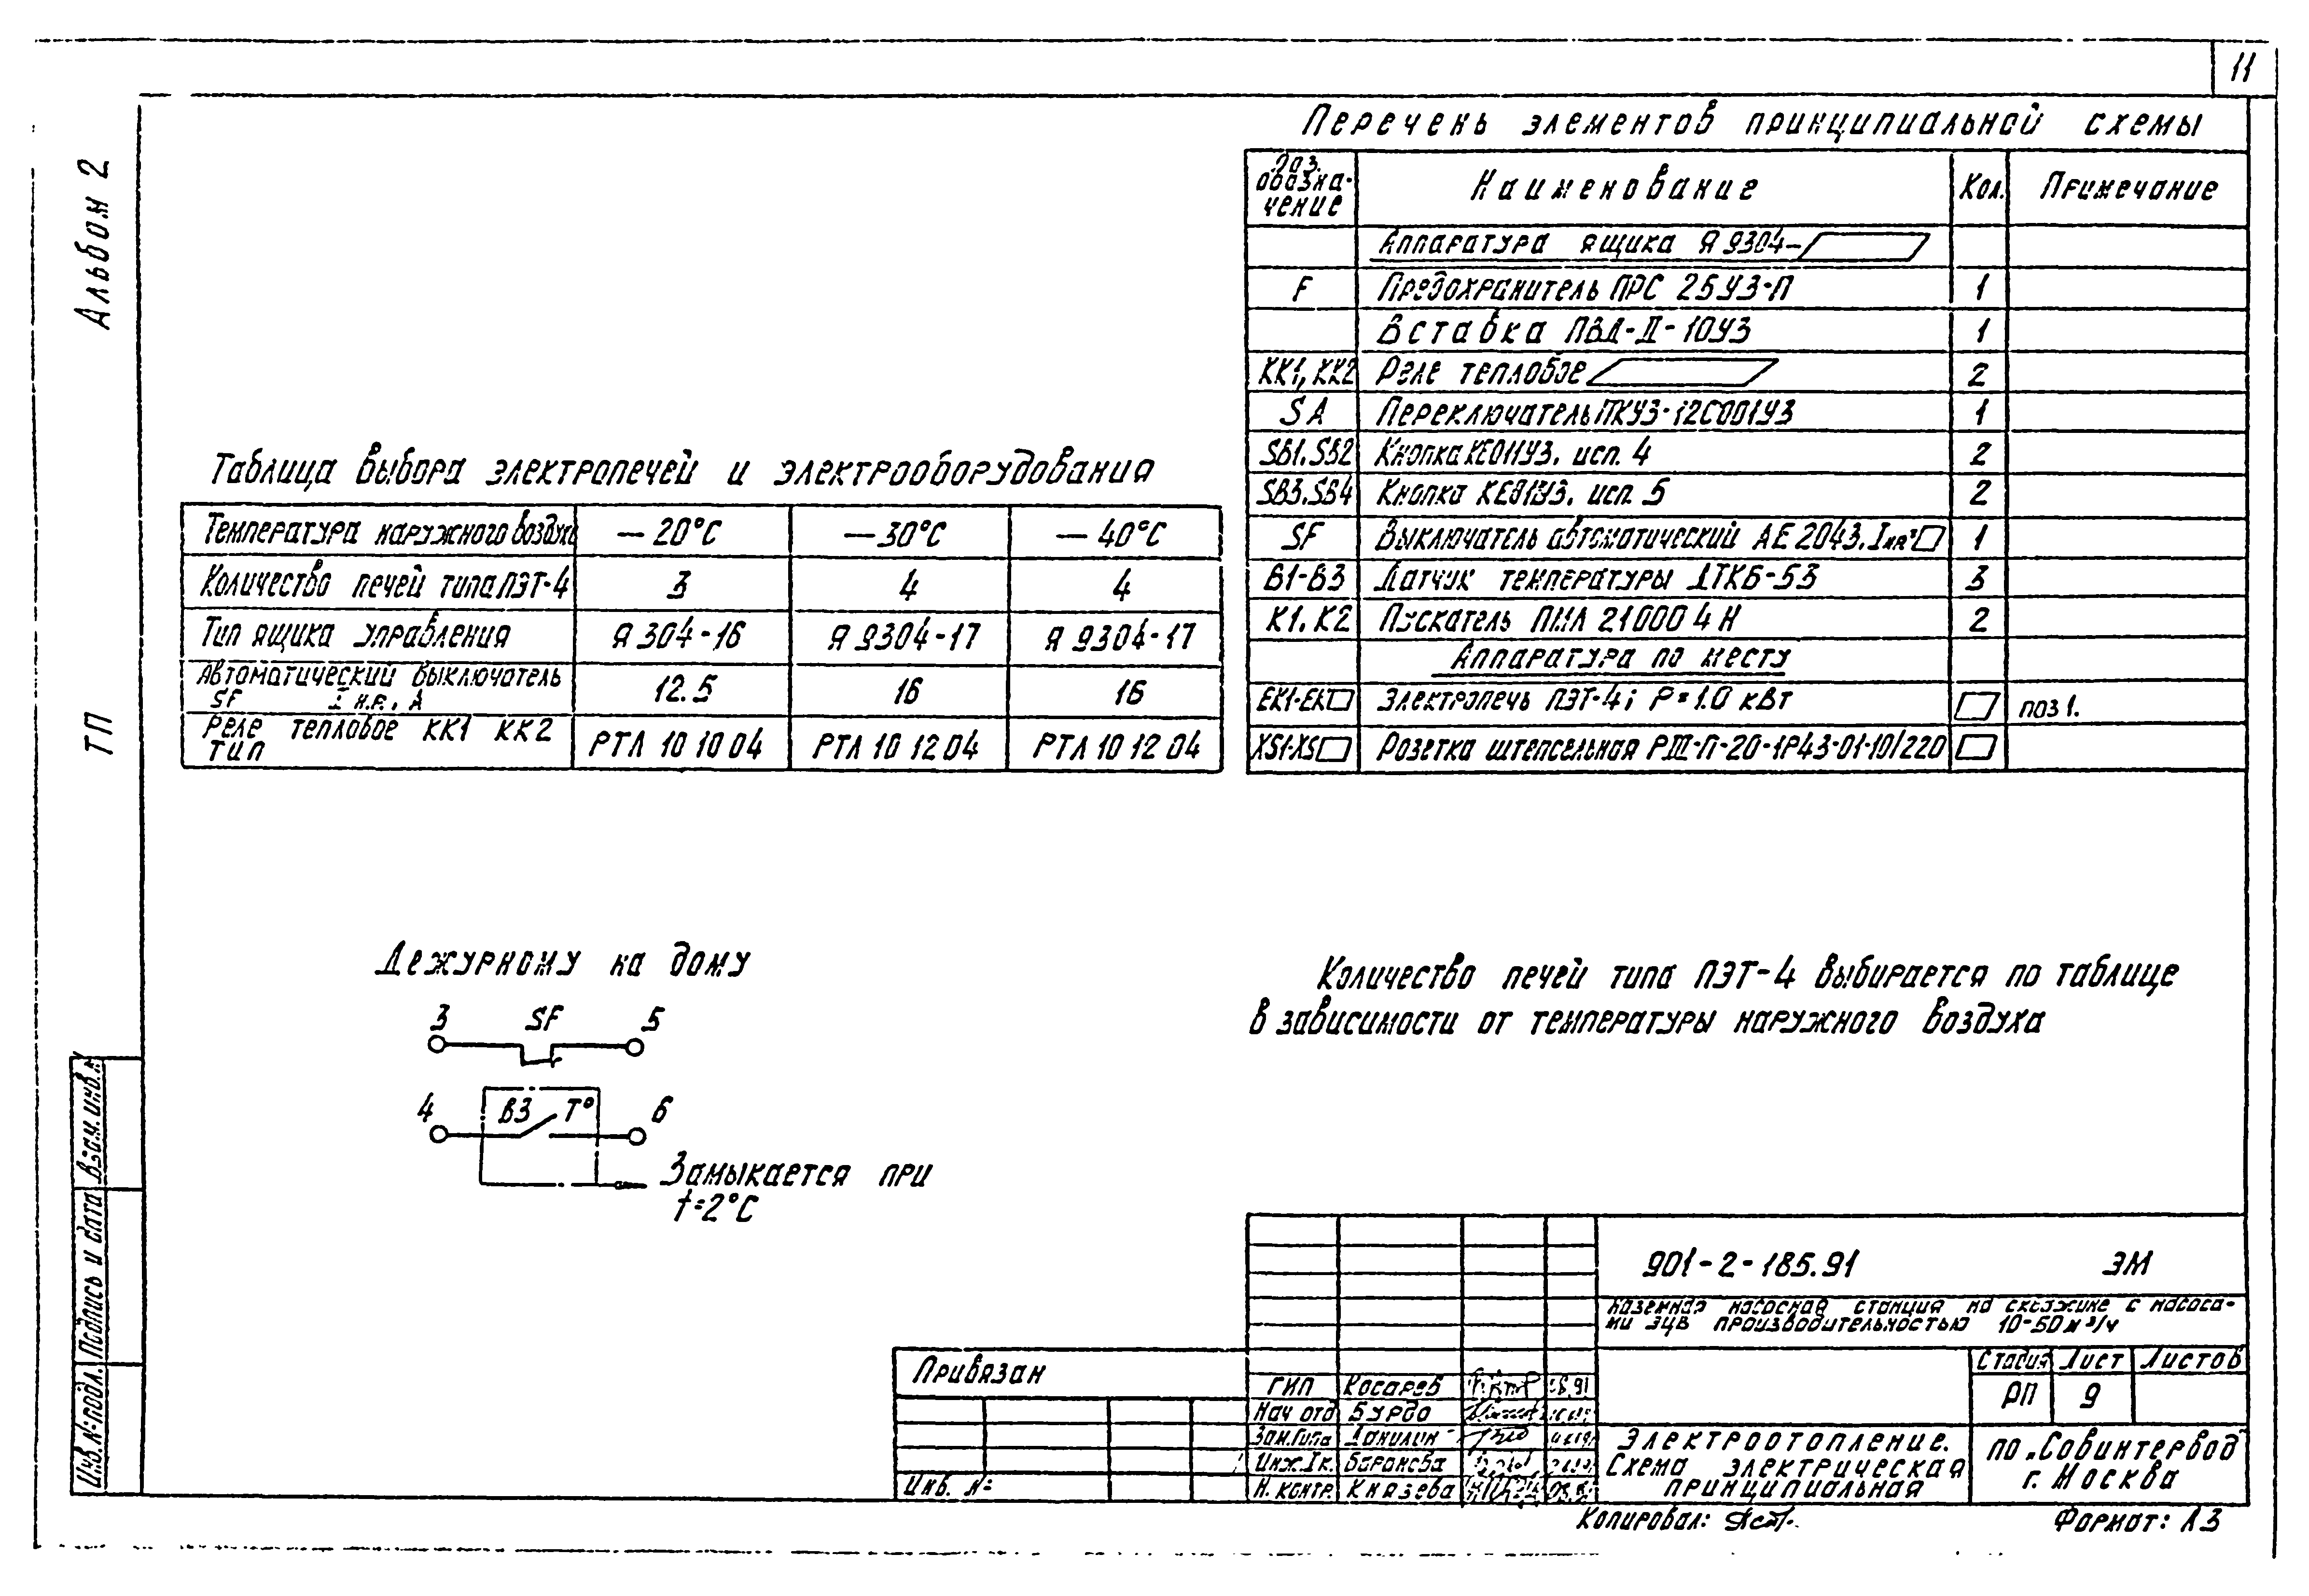 11
Альбом 2
ТП
Перечень элементов принципиальной схемы
Поз. обозна-чение | Наименование | Кол. | Примечание
Аппаратура ящика Я 9304-
F | Предохранитель ПРС 25У3-П | 1
Вставка ПВД-II-10У3 | 1
КК1, КК2 | Реле тепловое | 2
SA | Переключатель ПКУ3-12С001У3 | 1
SB1. SB2 | Кнопка КЕ011У3. исп. 4 | 2
SB3. SB4 | Кнопка КЕ011У3. исп. 5 | 2
SF | Выключатель автоматический АЕ 2043. Iнр= | 1
В1-В3 | Датчик температуры ДТКБ-53 | 3
К1. К2 | Пускатель ПМЛ 210004Н | 2
Аппаратура по месту
ЕК1-ЕК | Электропечь ПЭТ-4; Р=1.0 кВт | поз 1.
XS1-XS | Розетка штепсельная РШ-П-20-1Р43-01-10/220
Таблица выбора электропечей и электрооборудования
Температура наружного воздуха | —20°С | —30°С | —40°С
Количество печей типа ПЭТ-4 | 3 | 4 | 4
Тип ящика управления | Я 304-16 | Я 9304-17 | Я 9304-17
Автоматический выключатель SF I н.р., А | 12.5 | 16 | 16
Реле тепловое КК1 КК2 тип | РТЛ 10 10 04 | РТЛ 10 12 04 | РТЛ 10 12 04
Дежурному на дому
3 SF 5
4 В3 Т° 6
Замыкается при
t=2°С
Количество печей типа ПЭТ-4 выбирается по таблице
в зависимости от температуры наружного воздуха
Взам. инв. №
Подпись и дата
Инв. № подл.
Привязан
Инв. №
901-2-185.91 ЭМ
Наземная насосная станция на скважине с насоса-
ми ЭЦВ производительностью 10-50 м³/ч
Стадия | Лист | Листов
РП | 9
ГИП | Косарев
Нач отд | Бурда
Зам.Гипа | Данилин
Инж. I к. | Баранова
Н. контр. | Князева
Электроотопление.
Схема электрическая
принципиальная
по „Совинтервод"
г. Москва
Копировал:
Формат: А3